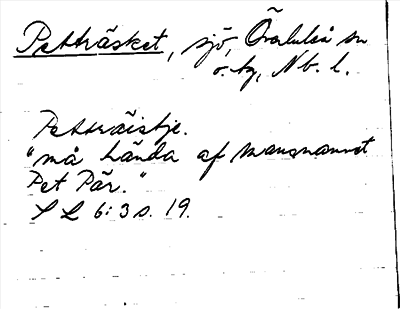 Petträsket, sjö, Överluleå sn
o. tg, Nb. l.
Petträistje.
"må hända af mansnamnet
Pet Pär."
S L 6:3 s. 19.